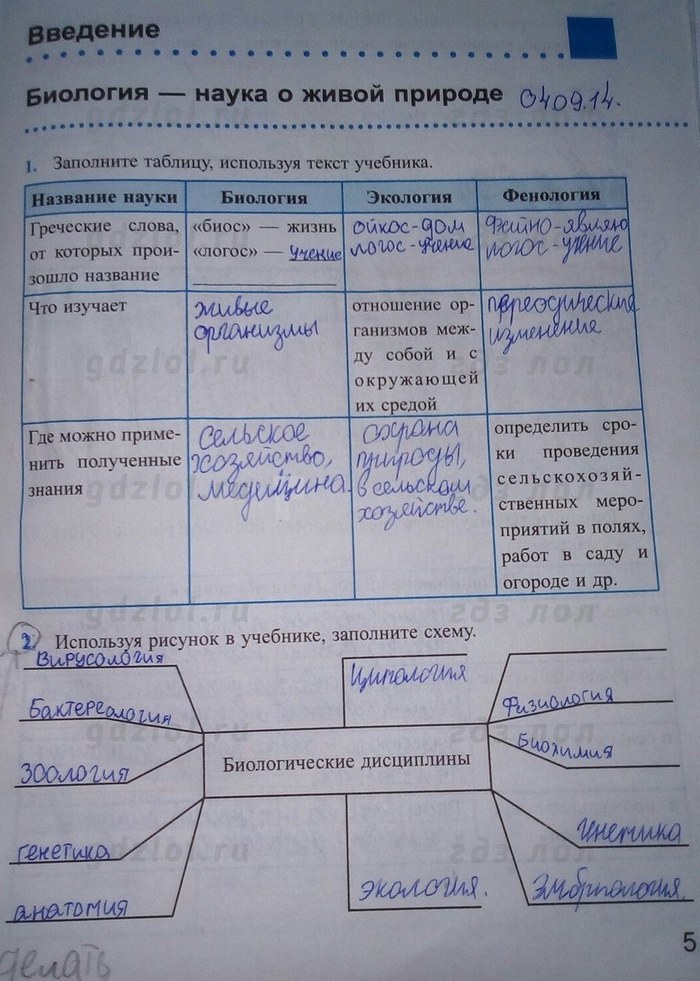 Введение
Биология — наука о живой природе 04.09.14.
1. Заполните таблицу, используя текст учебника.
Название науки Биология Экология Фенология
Греческие слова, от которых прои-
зошло название
«биос» — жизнь
«логос» — учение
ойкос-дом
логос-учение
Файно-являю
логос-учение
Что изучает
живые
организмы
отношение ор-
ганизмов меж-
ду собой и с
окружающей
их средой
переодические
изменение
Где можно приме-
нить полученные
знания
сельское
хозяйство,
медицина.
охрана
природы,
в сельском
хозяйстве.
определить сро-
ки проведения
сельскохозяй-
ственных меро-
приятий в полях,
работ в саду и
огороде и др.
2. Используя рисунок в учебнике, заполните схему.
Вирусология
Бактереология
зоология
генетика
анатомия
Цитология
Биологические дисциплины
экология.
Физиология
Биохимия
генетика
Эмбриология.
5
делать
gdzlol.ru гдз лол
gdzlol.ru гдз лол
gdzlol.ru гдз лол
gdzlol.ru гдз лол
gdzlol.ru гдз лол
gdzlol.ru гдз лол